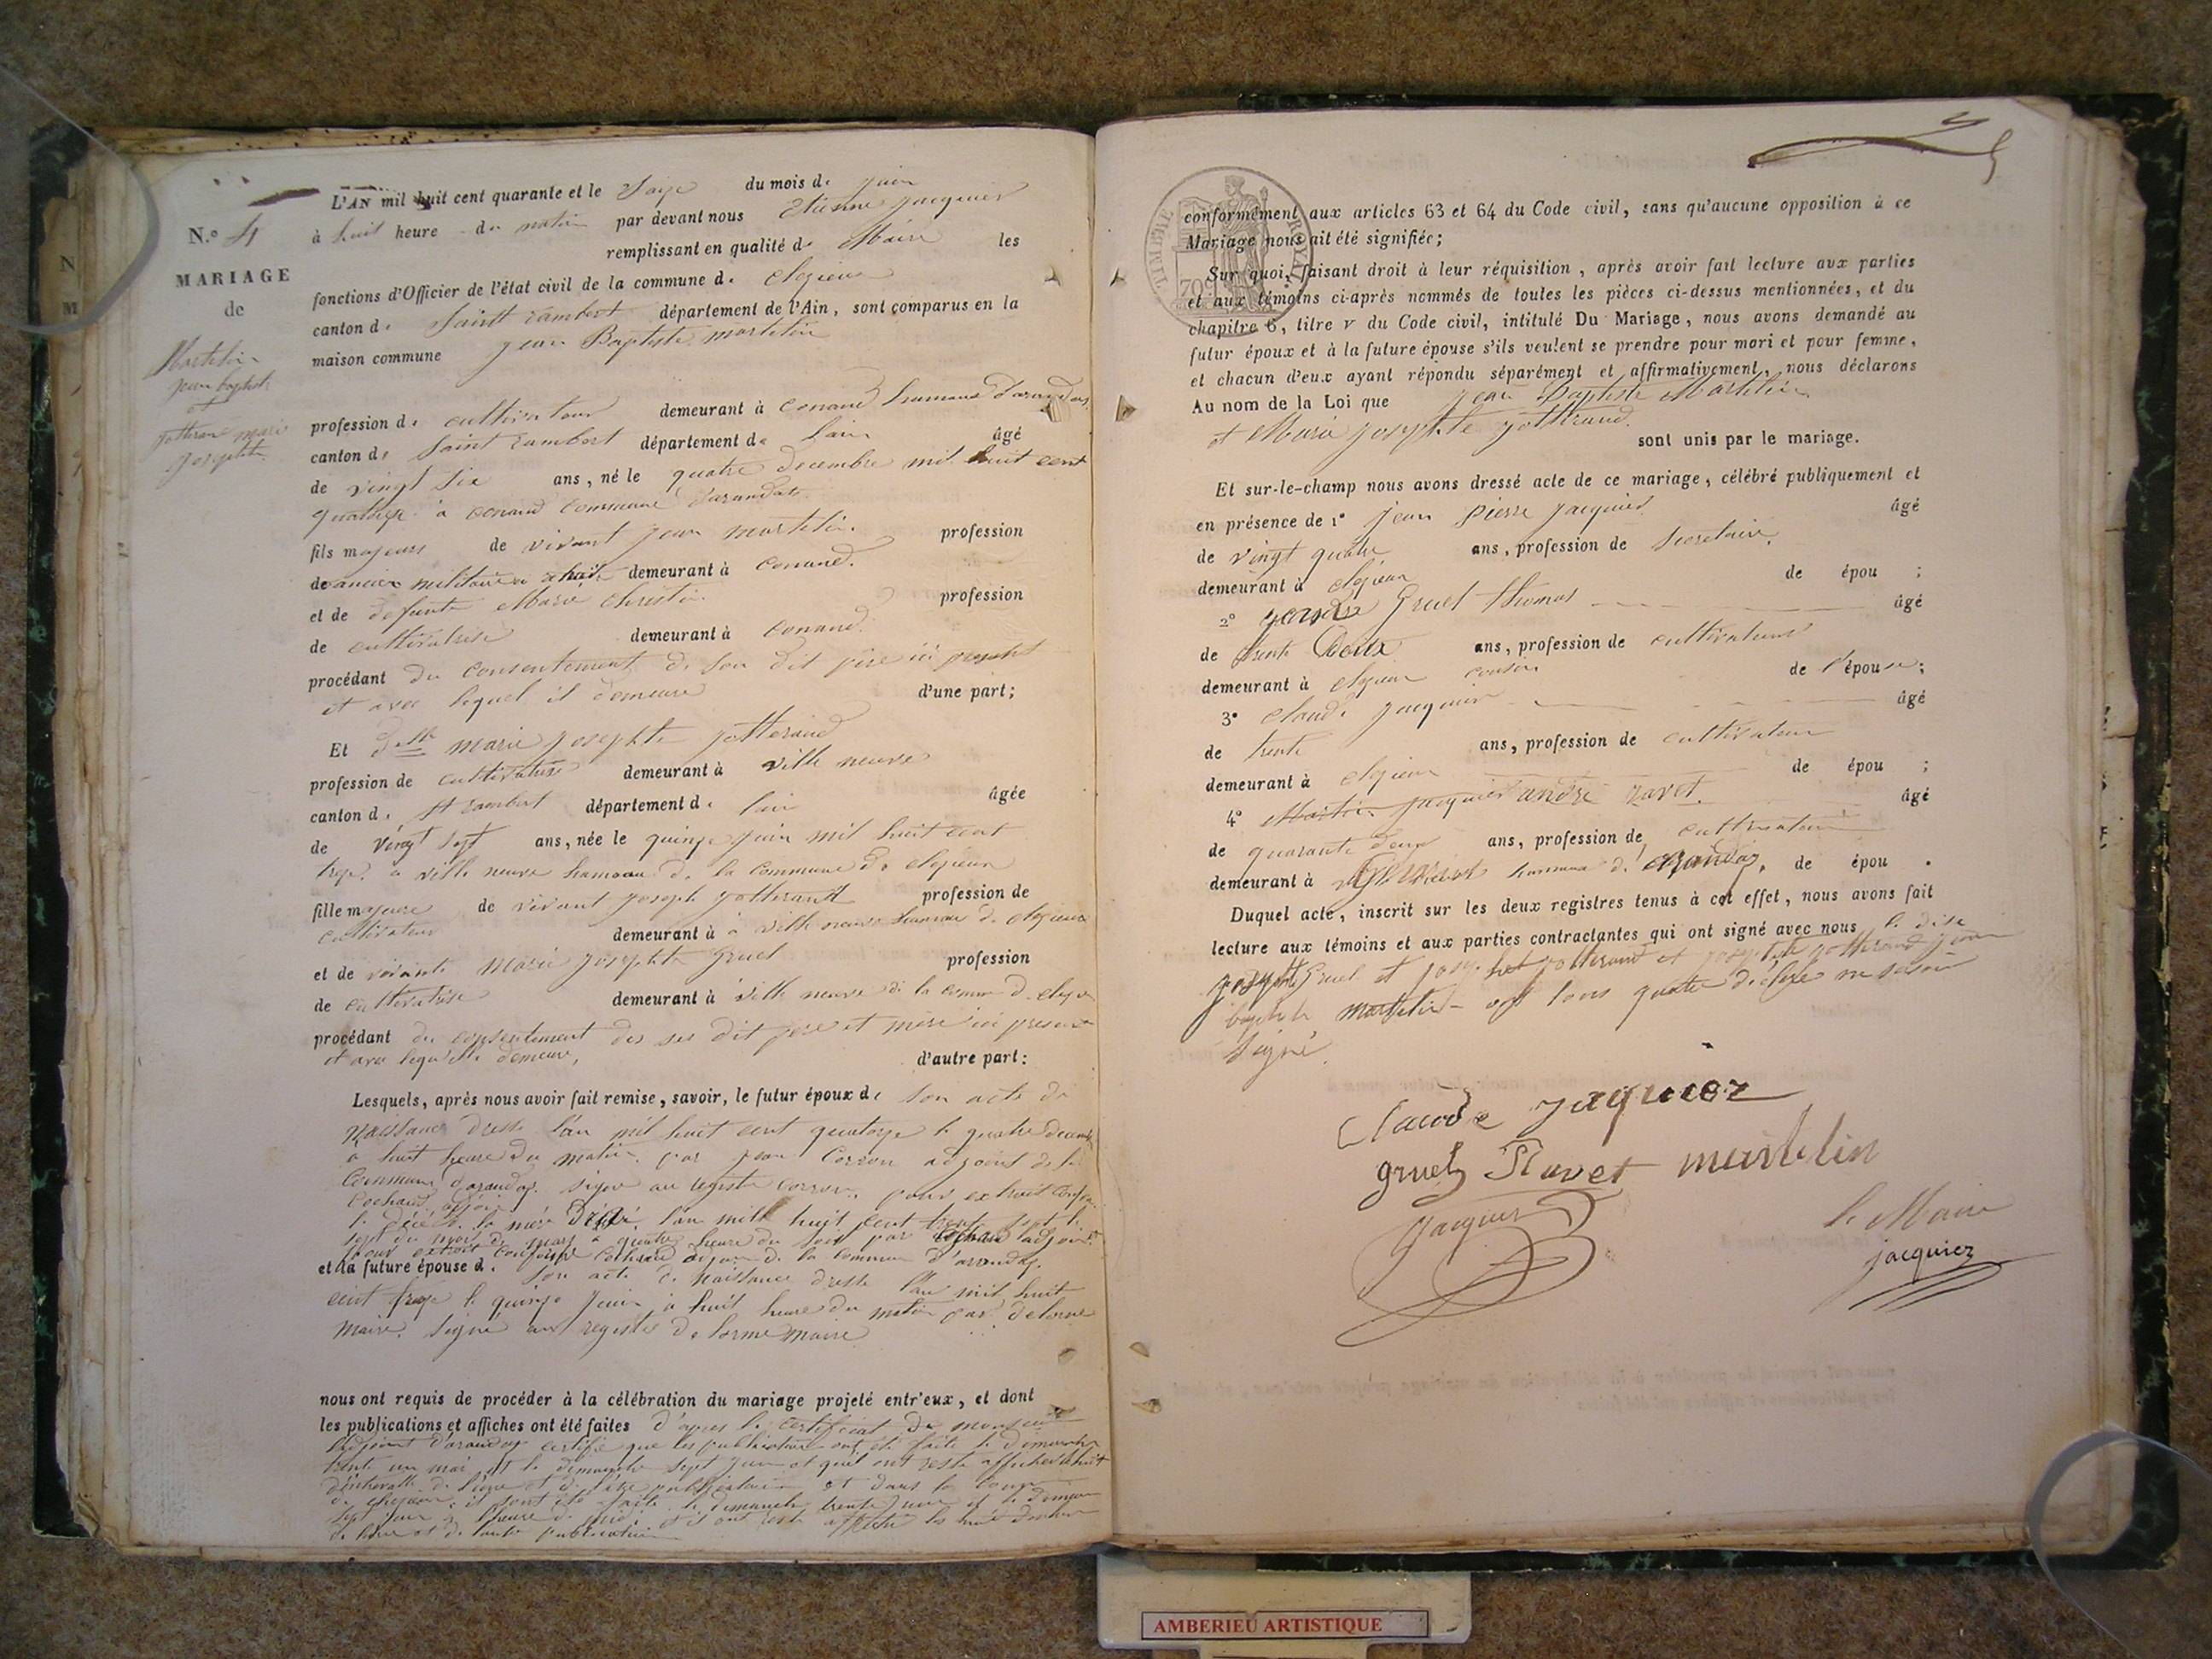 N.º 4
MARIAGE
de
Martelin
jean baptiste
et
jotterand marie
josephte
L'AN mil huit cent quarante et le Saize du mois de juin
à huit heure du matin par devant nous Etienne jacquier
remplissant en qualité de Maire les
fonctions d'Officier de l'état civil de la commune de Clezieux
canton de Saint rambert département de l'Ain, sont comparus en la
maison commune jean Baptiste martelin
profession de cultivateur demeurant à Conand hameaux d'arandas
canton de Saint rambert département de l'ain âgé
de vingt six ans, né le quatre decembre mil huit cent
quatorze à conand Commune d'arandas
fils majeurs de vivant jean martelin profession
de ancien militaire demeurant à Conand.
et de defunte Marie Christin profession
de cultivatrise demeurant à Conand.
procédant du consentement de son dit père ici present
et avec lequel il demeure d'une part;
Et delle marie josephte jotterand
profession de cultivatrise demeurant à ville neuve
canton de St rambert département de l'ain âgée
de vingt sept ans, née le quinze juin mil huit cent
treze à ville neuve hameau de la commune de clezieux
fille majeure de vivant joseph jotterand profession de
cultivateur demeurant à à ville neuve hameau de clezieux
et de vivante Marie josephte Gruel profession
de cultivatrise demeurant à ville neuve de la comm de
procédant du consentement des ses dit pere et mère ici present
et avec lequ'elle demeure, d'autre part:
Lesquels, après nous avoir fait remise, savoir, le futur époux de son acte de
naissance dressé l'an mil huit cent quatorze le quatre decembre
à huit heure du matin par jean Corron adjoint de la
Commune d'arandas signé au registre corron, pour extrait
Cochand adjoint
le décès de la mère l'an mill huit cent trente sept le
sept du mois de mars à quatre heure du soir par Cochand adjoint
pour extrait conforme Cochand adjoint de la commune d'arandas
et la future épouse de son acte de naissance dressé l'an mil huit
cent treze le quinze juin à huit heure du matin par delorme
maire. signé au registre delorme maire
nous ont requis de procéder à la célébration du mariage projeté entr'eux, et dont
les publications et affiches ont été faites d'apres le certificat de monsieur
l'adjoint d'arandas certifie que les publications ont été faite le dimanche
trente un mai et le dimanche sept juin et quil ont resté affiches
d'intervalle de l'une et de l'autre publication et dans la
de clezieux, il sont été faite le dimanche trente un et le
sept juin à l'heure de midi et il ont resté affiche les huit
de l'une et de l'autre publication
TIMBRE ROYAL
70c
conformément aux articles 63 et 64 du Code civil, sans qu'aucune opposition à ce
Mariage nous ait été signifiée;
Sur quoi, faisant droit à leur réquisition, après avoir fait lecture aux parties
et aux témoins ci-après nommés de toutes les pièces ci-dessus mentionnées, et du
chapitre 6, titre v du Code civil, intitulé Du Mariage, nous avons demandé au
futur époux et à la future épouse s'ils veulent se prendre pour mari et pour femme,
et chacun d'eux ayant répondu séparément et affirmativement, nous déclarons
Au nom de la Loi que jean Baptiste Martelin
et Marie josephte jotterand. sont unis par le mariage.
Et sur-le-champ nous avons dressé acte de ce mariage, célébré publiquement et
en présence de 1º jean pierre jacquier âgé
de vingt quatre ans, profession de Secretaire,
demeurant à clezieux de épou ;
2º Gruel thomas âgé
de trente Deux ans, profession de cultivateur
demeurant à clezieux cousin de l'épouse;
3º Claude jacquier âgé
de trente ans, profession de cultivateur
demeurant à clezieux de épou ;
4º Martin jacquier andré ravet. âgé
de quarante deux ans, profession de cultivateur
demeurant à commune d'arandas. de épou .
Duquel acte, inscrit sur les deux registres tenus à cet effet, nous avons fait
lecture aux témoins et aux parties contractantes qui ont signé avec nous le dite
josephte Gruel et joseph jotterand et josephte jotterand jean
baptiste martelin ont tous quatre déclaré ne savoir
Signé.
Claude jaquiez
gruel Ravet martelin
Jacquier
le Maire
jacquiez
AMBERIEU ARTISTIQUE